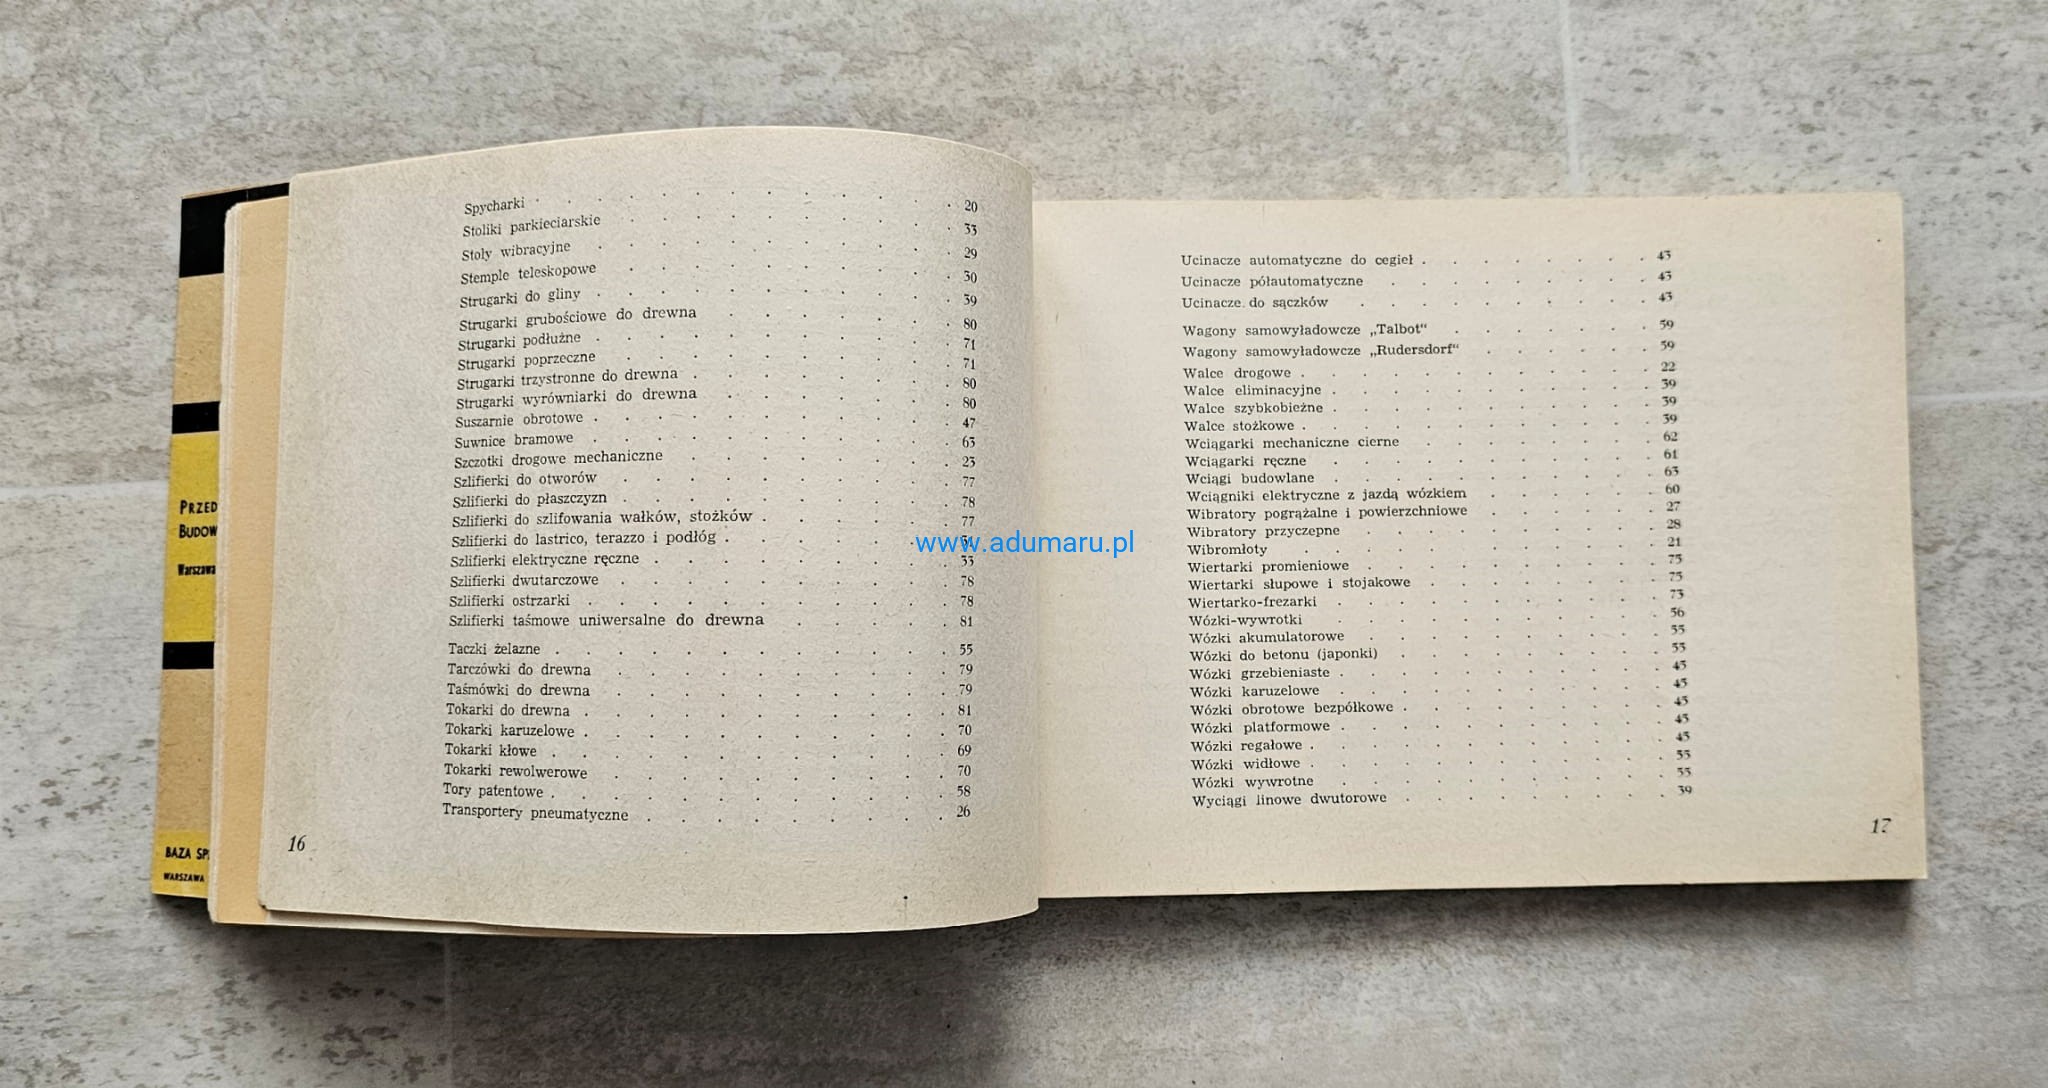 Spycharki . . . . . . . . . . . . 20
Stoliki parkieciarskie . . . . . . . . . . 33
Stoly wibracyjne . . . . . . . . . . 29
Stemple teleskopowe . . . . . . . . . . 30
Strugarki do gliny . . . . . . . . . . 39
Strugarki grubościowe do drewna . . . . . . . 80
Strugarki podłużne . . . . . . . . . . 71
Strugarki poprzeczne . . . . . . . . . . 71
Strugarki trzystronne do drewna . . . . . . . . 80
Strugarki wyrówniarki do drewna . . . . . . . 80
Suszarnie obrotowe . . . . . . . . . . 47
Suwnice bramowe . . . . . . . . . . 63
Szczotki drogowe mechaniczne . . . . . . . . 23
Szlifierki do otworów . . . . . . . . . . 77
Szlifierki do płaszczyzn . . . . . . . . . . 78
Szlifierki do szlifowania wałków, stożków . . . . . . 77
Szlifierki do lastrico, terazzo i podłóg . . . . . . .
Szlifierki elektryczne ręczne . . . . . . . . . 33
Szlifierki dwutarczowe . . . . . . . . . . 78
Szlifierki ostrzarki . . . . . . . . . . . 78
Szlifierki taśmowe uniwersalne do drewna . . . . . 81
Taczki żelazne . . . . . . . . . . . . 55
Tarczówki do drewna . . . . . . . . . . 79
Taśmówki do drewna . . . . . . . . . . 79
Tokarki do drewna . . . . . . . . . . . 81
Tokarki karuzelowe . . . . . . . . . . . 70
Tokarki kłowe . . . . . . . . . . . . 69
Tokarki rewolwerowe . . . . . . . . . . 70
Tory patentowe . . . . . . . . . . . . 58
Transportery pneumatyczne . . . . . . . . . 26
16
Ucinacze automatyczne do cegieł . . . . . . . . 43
Ucinacze półautomatyczne . . . . . . . . . 43
Ucinacze do sączków . . . . . . . . . 43
Wagony samowyładowcze „Talbot“ . . . . . . . 59
Wagony samowyładowcze „Rudersdorf“ . . . . . . 59
Walce drogowe . . . . . . . . . . . . 22
Walce eliminacyjne . . . . . . . . . . . 39
Walce szybkobieżne . . . . . . . . . . . 39
Walce stożkowe . . . . . . . . . . . . 39
Wciągarki mechaniczne cierne . . . . . . . . 62
Wciągarki ręczne . . . . . . . . . . . 61
Wciągi budowlane . . . . . . . . . . . 63
Wciągniki elektryczne z jazdą wózkiem . . . . . . 60
Wibratory pogrążalne i powierzchniowe . . . . . . 27
Wibratory przyczepne . . . . . . . . . . 28
Wibromłoty . . . . . . . . . . . . 21
Wiertarki promieniowe . . . . . . . . . . 75
Wiertarki słupowe i stojakowe . . . . . . . . 75
Wiertarko-frezarki . . . . . . . . . . . 73
Wózki-wywrotki . . . . . . . . . . . 56
Wózki akumulatorowe . . . . . . . . . . 55
Wózki do betonu (japonki) . . . . . . . . . 55
Wózki grzebieniaste . . . . . . . . . . . 45
Wózki karuzelowe . . . . . . . . . . . 45
Wózki obrotowe bezpółkowe . . . . . . . . . 45
Wózki platformowe . . . . . . . . . . . 45
Wózki regałowe . . . . . . . . . . . . 45
Wózki widłowe . . . . . . . . . . . . 55
Wózki wywrotne . . . . . . . . . . . 55
Wyciągi linowe dwutorowe . . . . . . . . . 39
17
PRZED
BUDOW
Warszawa
BAZA
WARSZAWA
www.adumaru.pl